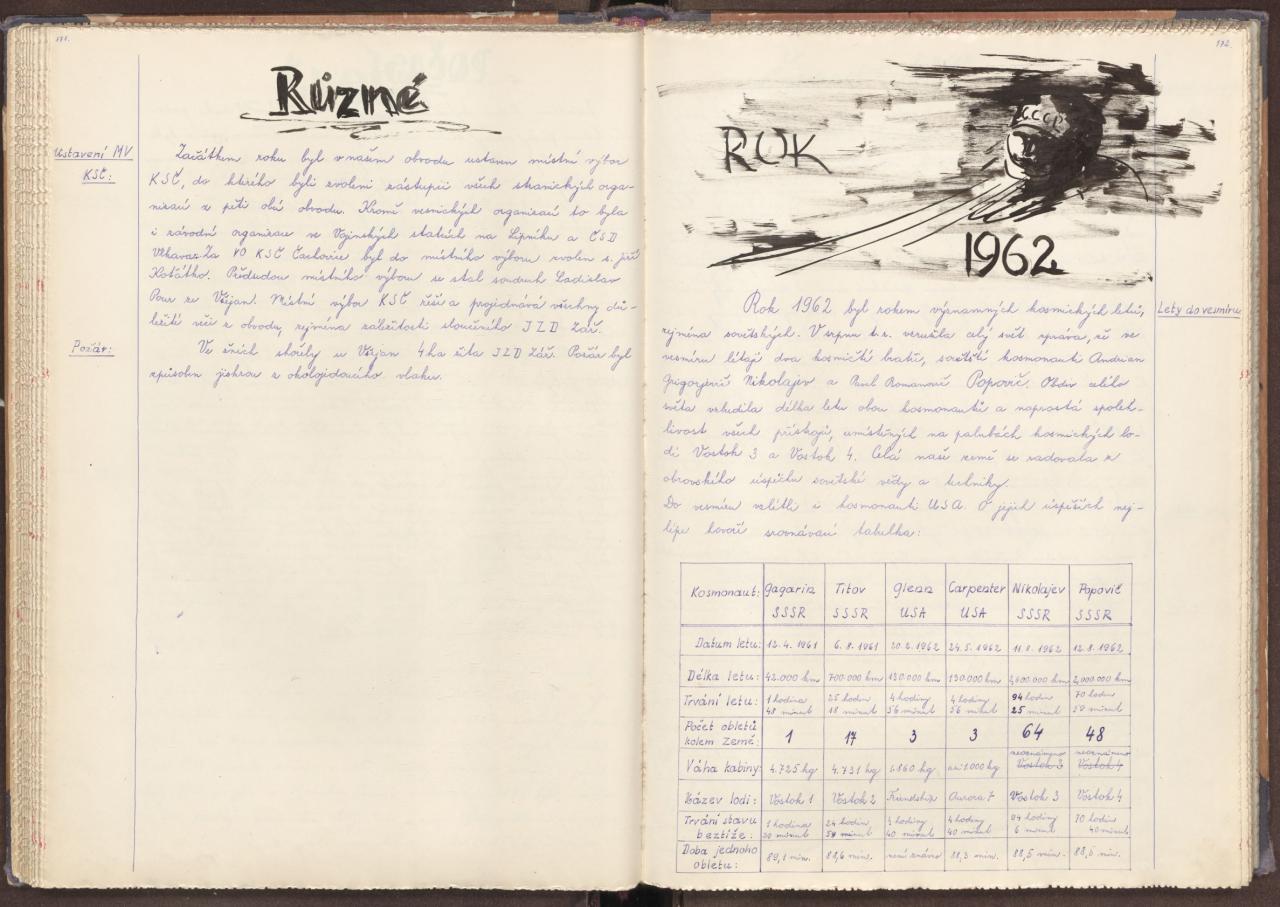 171.
Různé
Ustavení MV
KSČ:
Začátkem roku byl v našem obvodu ustaven místní výbor
KSČ, do kterého byli zvoleni zástupci všech stranických orga-
nizací z pěti obcí obvodu. Kromě vesnických organizací to byla
i závodní organizace ve Vojenských statcích na Lipníku a ČSD
Vlkava. Za VO KSČ Čachovice byl do místního výboru zvolen s. Jiří
Košátko. Předsedou místního výboru se stal soudruh Ladislav
Pour ze Všejan. Místní výbor KSČ řeší a projednává všechny dů-
ležité věci z obvodu, zejména záležitosti sloučeného JZD Zář.
Požár:
Ve žních shořely u Všejan 4 ha žita JZD Zář. Požár byl
způsoben jiskrou z okolojedoucího vlaku.
172.
ROK
CCCP
1962
Lety do vesmíru
Rok 1962 byl rokem významných kosmických letů,
zejména sovětských. V srpnu t.r. vzrušila celý svět zpráva, že ve
vesmíru létají dva kosmičtí bratři, sovětští kosmonauti Andrian
Grigorjevič Nikolajev a Pavel Romanovič Popovič. Obdiv celého
světa vzbudila délka letu obou kosmonautů a naprostá spoleh-
livost všech přístrojů, umístěných na palubách kosmických lo-
dí Vostok 3 a Vostok 4. Celá naše země se radovala z
obrovského úspěchu sovětské vědy a techniky.
Do vesmíru vzlétli i kosmonauti USA. O jejich úspěších nej-
lépe hovoří srovnávací tabulka:
Kosmonaut: Gagarin Titov Glenn Carpenter Nikolajev Popovič
SSSR SSSR USA USA SSSR SSSR
Datum letu: 12.4.1961 6.8.1961 20.2.1962 24.5.1962 11.8.1962 12.8.1962
Délka letu: 42.000 km 700.000 km 130.000 km 130.000 km 2,600.000 km 2,000.000 km
Trvání letu: 1 hodina 25 hodin 4 hodiny 4 hodiny 94 hodin 70 hodin
48 minut 18 minut 56 minut 56 minut 25 minut 59 minut
Počet obletů
kolem Země: 1 17 3 3 64 48
neoznámeno neoznámeno
Váha kabiny: 4.725 kg 4.731 kg 1.860 kg asi 1000 kg Vostok 3 Vostok 4
Název lodi: Vostok 1 Vostok 2 Friendship Aurora 7 Vostok 3 Vostok 4
Trvání stavu 1 hodina 24 hodin 4 hodiny 4 hodiny 94 hodiny 70 hodin
beztíže: 30 minut 58 minut 40 minut 40 minut 6 minut 40 minut
Doba jednoho
obletu: 89,1 min. 88,6 min. není známo 88,3 min. 88,5 min. 88,5 min.